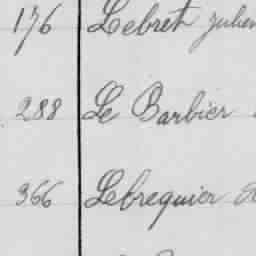 176 Lebret Julien
288 Le Barbier
366 Lebreguier